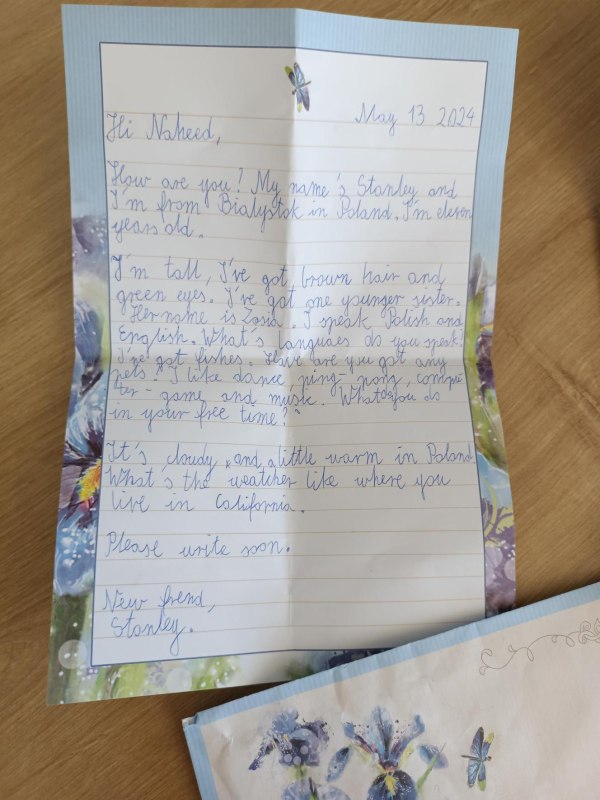 May 13 2024
Hi Naheed,
How are you? My name's Stanley and
I'm from Białystok in Poland. I'm eleven
years old.
I'm tall, I've got brown hair and
green eyes. I've got one younger sister.
Her name is Zosia. I speak Polish and
English. What's languaes do you speak?
I've got fishes. Have are you got any
pets? I like dance, ping-pong, compu-
ter-game and music. What do you do
in your free time?
It's cloudy and a little warm in Poland.
What's the weatcher like where you
live in California.
Please write soon.
New frend,
Stanley.